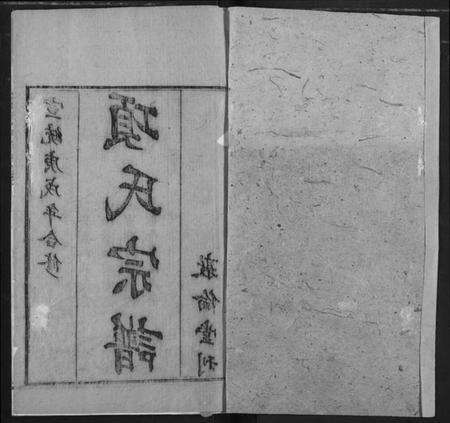 宣統庚戌年合修
項氏宗譜
敦倫堂刊